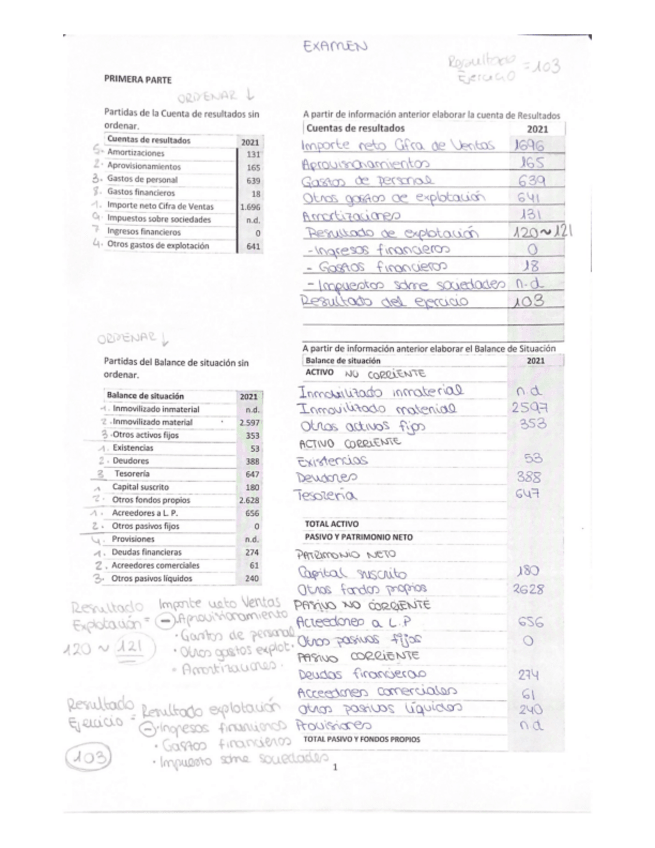 EXAMEN
Resultado Ejercicio = 103
PRIMERA PARTE
ORDENAR ↓
Partidas de la Cuenta de resultados sin
ordenar.
Cuentas de resultados 2021
5. Amortizaciones 131
2. Aprovisionamientos 165
3. Gastos de personal 639
8. Gastos financieros 18
1. Importe neto Cifra de Ventas 1.696
9. Impuestos sobre sociedades n.d.
7 Ingresos financieros 0
4. Otros gastos de explotación 641
A partir de información anterior elaborar la cuenta de Resultados
Cuentas de resultados 2021
Importe neto Cifra de Ventas 1696
Aprovisionamientos 165
Gastos de personal 639
Otros gastos de explotación 641
Amortizaciones 131
Resultado de explotación 120 ~ 121
- Ingresos financieros 0
- Gastos financieros 18
- Impuestos sobre sociedades n.d
Resultado del ejercicio 103
ORDENAR ↓
Partidas del Balance de situación sin
ordenar.
Balance de situación 2021
1. Inmovilizado inmaterial n.d.
2. Inmovilizado material 2.597
3. Otros activos fijos 353
1. Existencias 53
2. Deudores 388
3 Tesorería 647
1 Capital suscrito 180
2. Otros fondos propios 2.628
1. Acreedores a L. P. 656
2. Otros pasivos fijos 0
4. Provisiones n.d.
1. Deudas financieras 274
2. Acreedores comerciales 61
3. Otros pasivos líquidos 240
A partir de información anterior elaborar el Balance de Situación
Balance de situación 2021
ACTIVO NO CORRIENTE
Inmovilizado inmaterial n.d
Inmovilizado material 2597
Otros activos fijos 353
ACTIVO CORRIENTE
Existencias 53
Deudores 388
Tesorería 647
TOTAL ACTIVO
PASIVO Y PATRIMONIO NETO
PATRIMONIO NETO
Capital suscrito 180
Otros fondos propios 2628
PASIVO NO CORRIENTE
Acreedores a L.P 656
Otros pasivos fijos 0
PASIVO CORRIENTE
Deudas financieras 274
Acreedores comerciales 61
Otros pasivos líquidos 240
Provisiones n.d
TOTAL PASIVO Y FONDOS PROPIOS
Resultado Explotación = Importe neto Ventas
- Aprovisionamiento
· Gastos de personal
· Otros gastos explot.
· Amortizaciones.
120 ~ 121
Resultado Ejercicio = Resultado explotación
- Ingresos financieros
· Gastos financieros
· Impuesto sobre sociedades
103
1